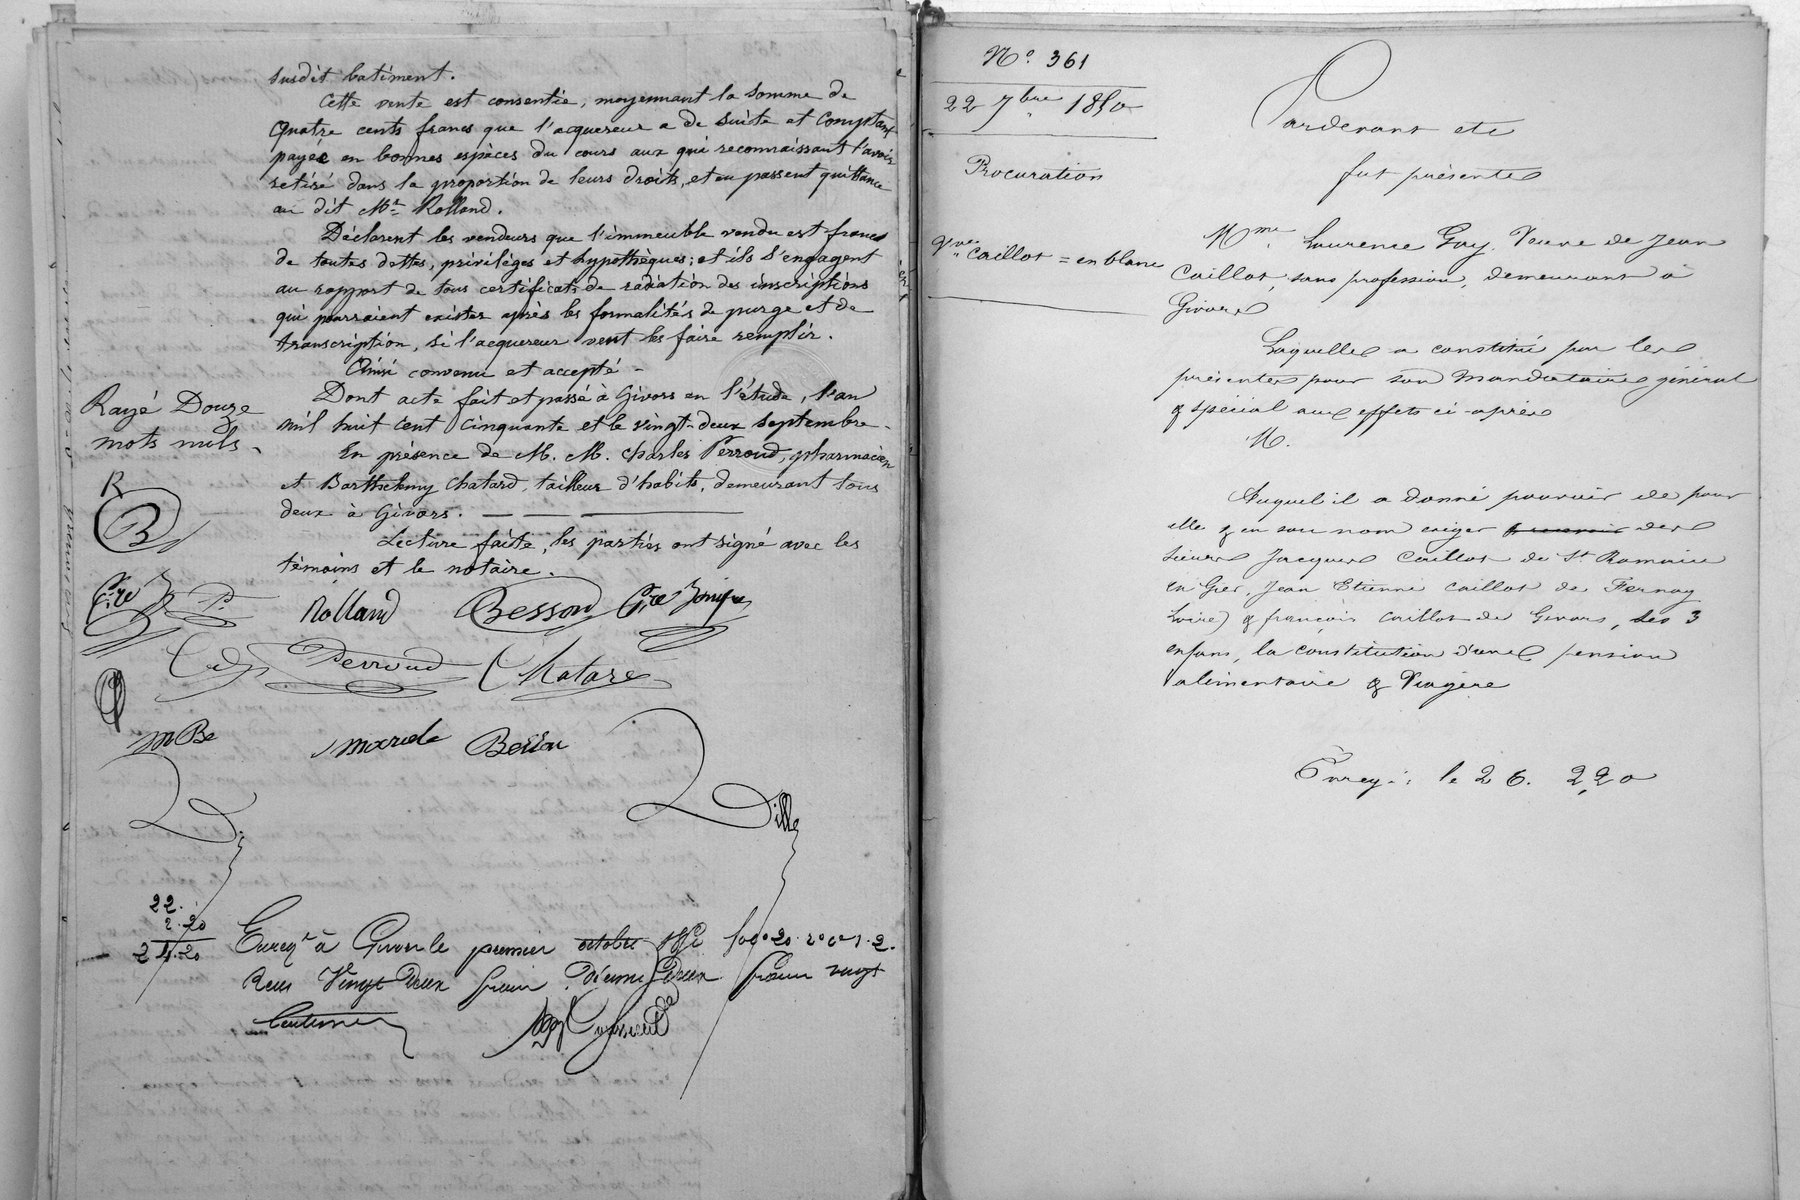 susdit batiment.
Cette vente est consentie, moyennant la somme de
quatre cents francs que l'acquereur a de suite et comptant
payée en bonnes espèces du cours aux qui reconnaissant l'avoir
retiré dans la proportion de leurs droits, et en passent quittance
au dit Mr. Rolland.
Déclarent les vendeurs que l'immeuble vendu est franc
de toutes dettes, privilèges et hypothèques; et ils s'engagent
au rapport de tous certificats de radiation des inscriptions
qui pourraient exister après les formalités de purge et de
transcription, si l'acquereur veut les faire remplir.
Ainsi convenu et accepté -
Dont acte fait et passé à Givors en l'étude, l'an
mil huit cent cinquante et le vingt-deux septembre.
En présence de M. M. Charles Perroud, pharmacien
et Barthelemy Chatard, tailleur d'habits, demeurant tous
deux à Givors.
Lecture faite, les parties ont signé avec les
témoins et le notaire.
Rayé Douze
mots nuls.
R
B
P.
Rolland Besson
Perroud Chatard
MB
marie Besson
Dille
22.
2.20
24.20
Enregé à Givors le premier octobre 1850 fo 20 ro c 1.2.
Reçu Vingt Deux francs Dixme Deux francs vingt
Centimes
No. 361
22 7bre 1850
Procuration
Vve Caillot = en blanc
Pardevant etc
fut présente
Mme Laurence Gay, Veuve de Jean
Caillot, sans profession, demeurant à
Givors
Laquelle a constitué par les
présentes pour son mandataire général
& spécial aux effets ci-après
M.
Auquel il a donné pouvoir de pour
elle & en son nom exiger des
sieurs Jacques Caillot de St. Romain
en Gier, Jean Etienne Caillot de Fernay
Loire) & françois Caillot de Givors, ses 3
enfans, la constitution d'une pension
alimentaire & Viagère
Enreg.: le 26. 2,20